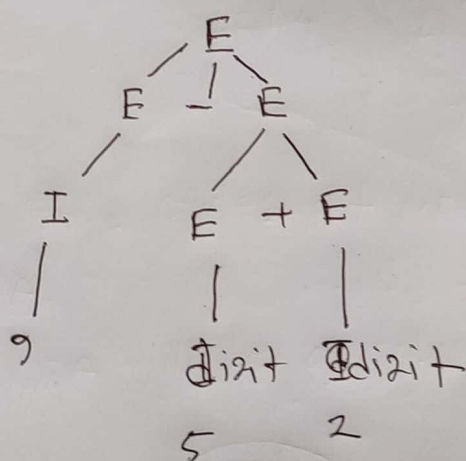 E
E - E
I E + E
9 digit digit
5 2